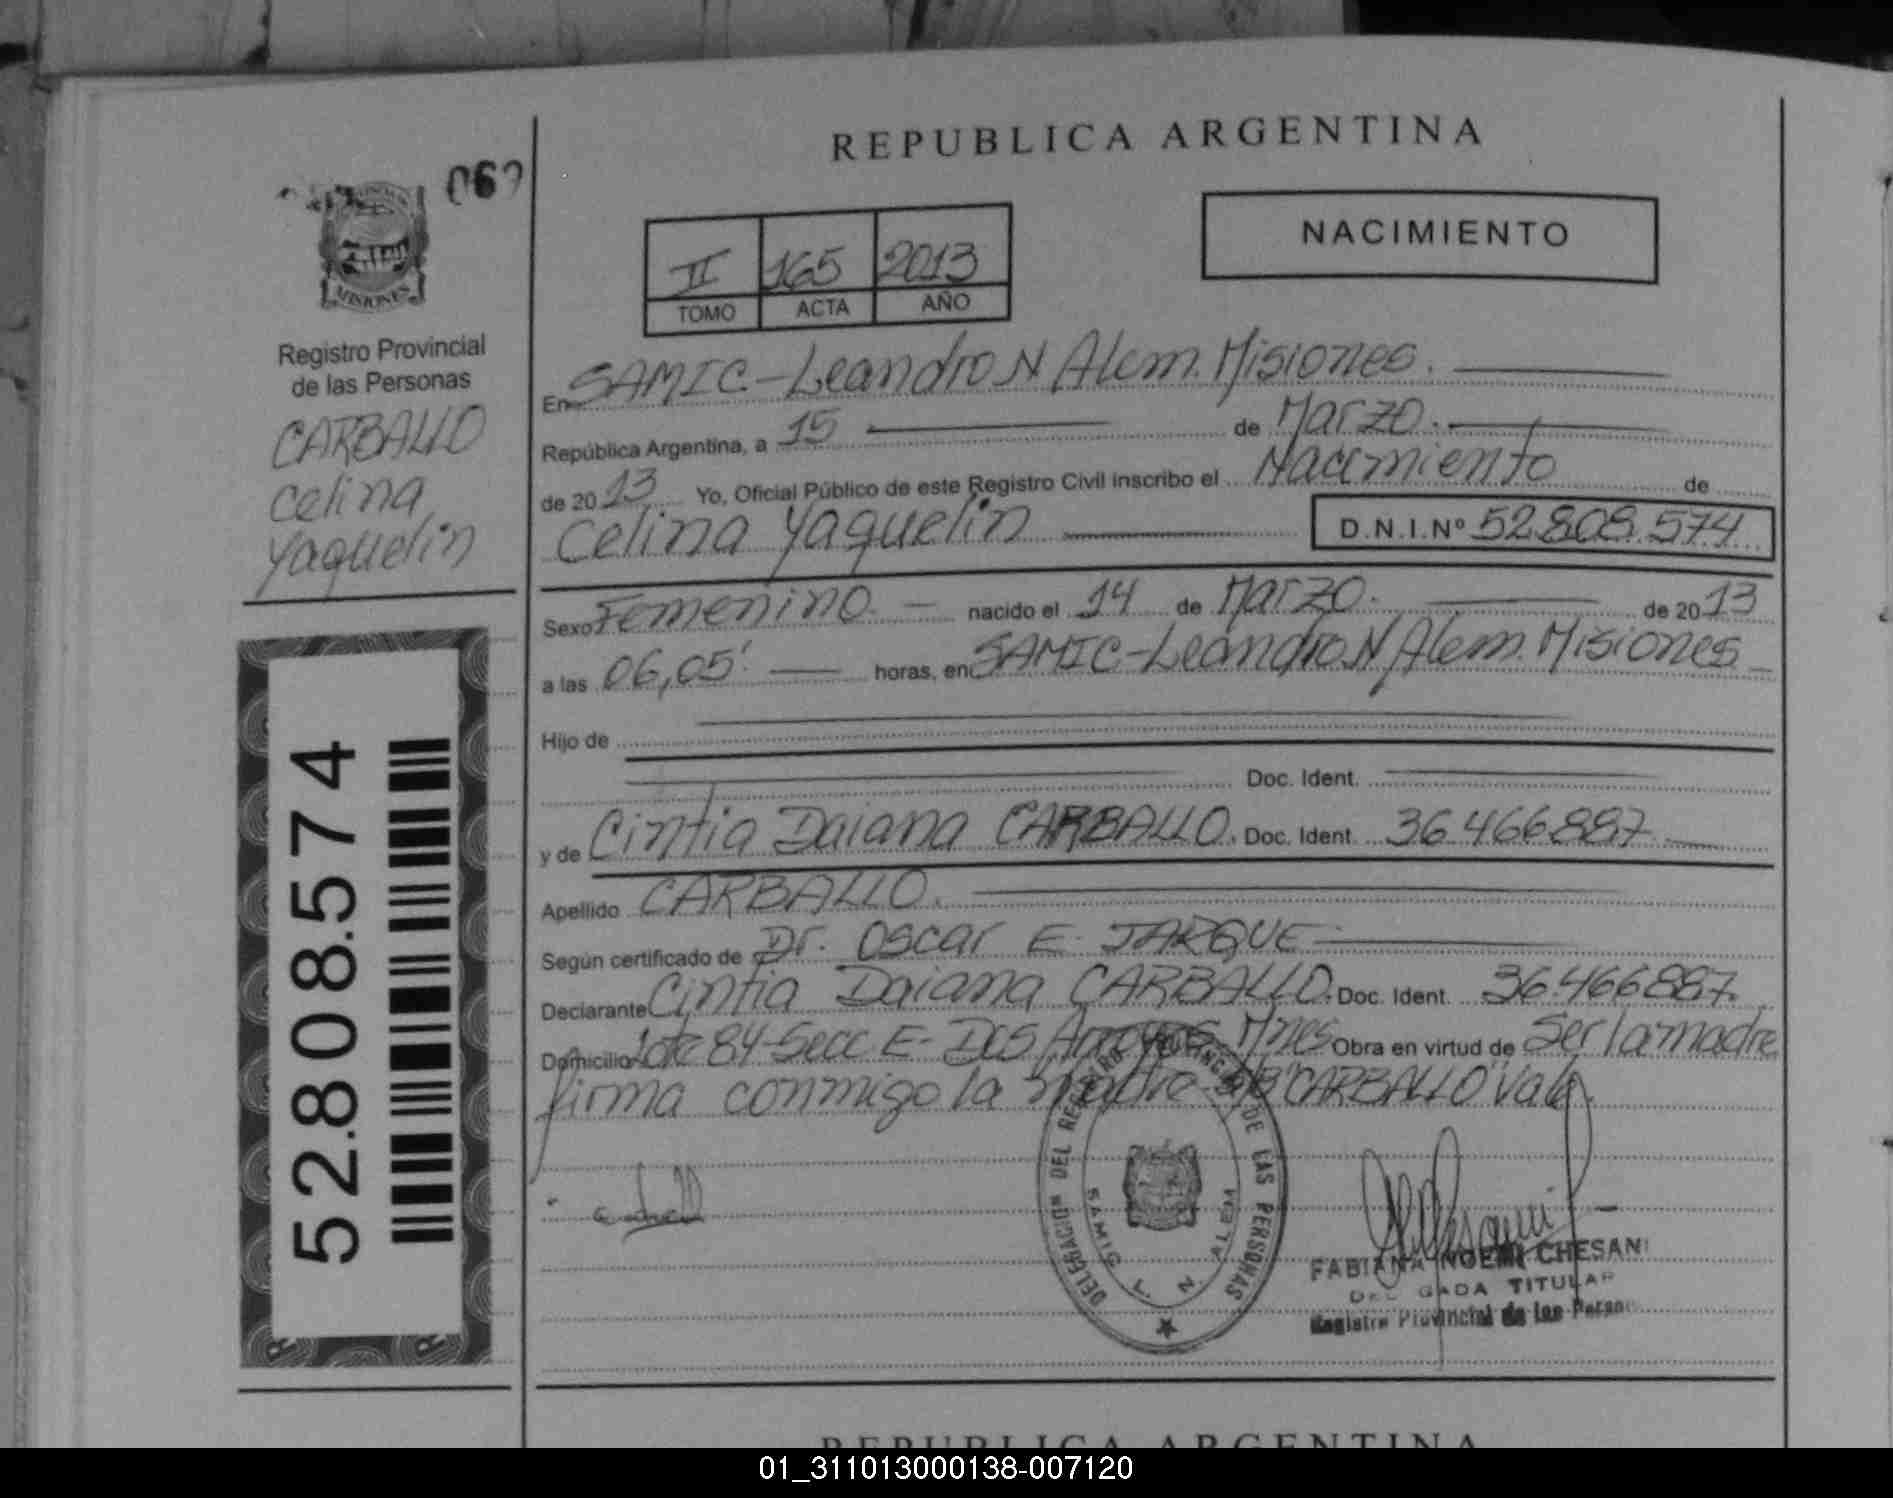 REPUBLICA ARGENTINA
NACIMIENTO
II 165 2013
TOMO ACTA AÑO
MISIONES
Registro Provincial
de las Personas
CARBALLO
Celina
Yaquelin
52.808.574
En SAMIC-Leandro N Alem. Misiones.
República Argentina, a 15 de Marzo.
de 2013 Yo, Oficial Público de este Registro Civil inscribo el Nacimiento de
Celina Yaquelin D.N.I.Nº 52.808.574
Sexo Femenino. nacido el 14 de Marzo. de 2013
a las 06,05' horas, en SAMIC-Leandro N Alem. Misiones
Hijo de
Doc. Ident.
y de Cintia Daiana CARBALLO. Doc. Ident. 36.466.887
Apellido CARBALLO.
Según certificado de Dr. Oscar E. JARQUE
Declarante Cintia Daiana CARBALLO. Doc. Ident. 36.466.887.
Domicilio Lote 84-Secc E- Dos Arroyos Mnes Obra en virtud de Ser la madre
firma conmigo la madre "CARBALLO" Vale.
DELEGACION DEL REGISTRO PROVINCIAL DE LAS PERSONAS
SAMIC L. N. ALEM
FABIANA NOEMI CHESANI
DELEGADA TITULAR
Registro Provincial de las Person
REPUBLICA ARGENTINA
01_311013000138-007120